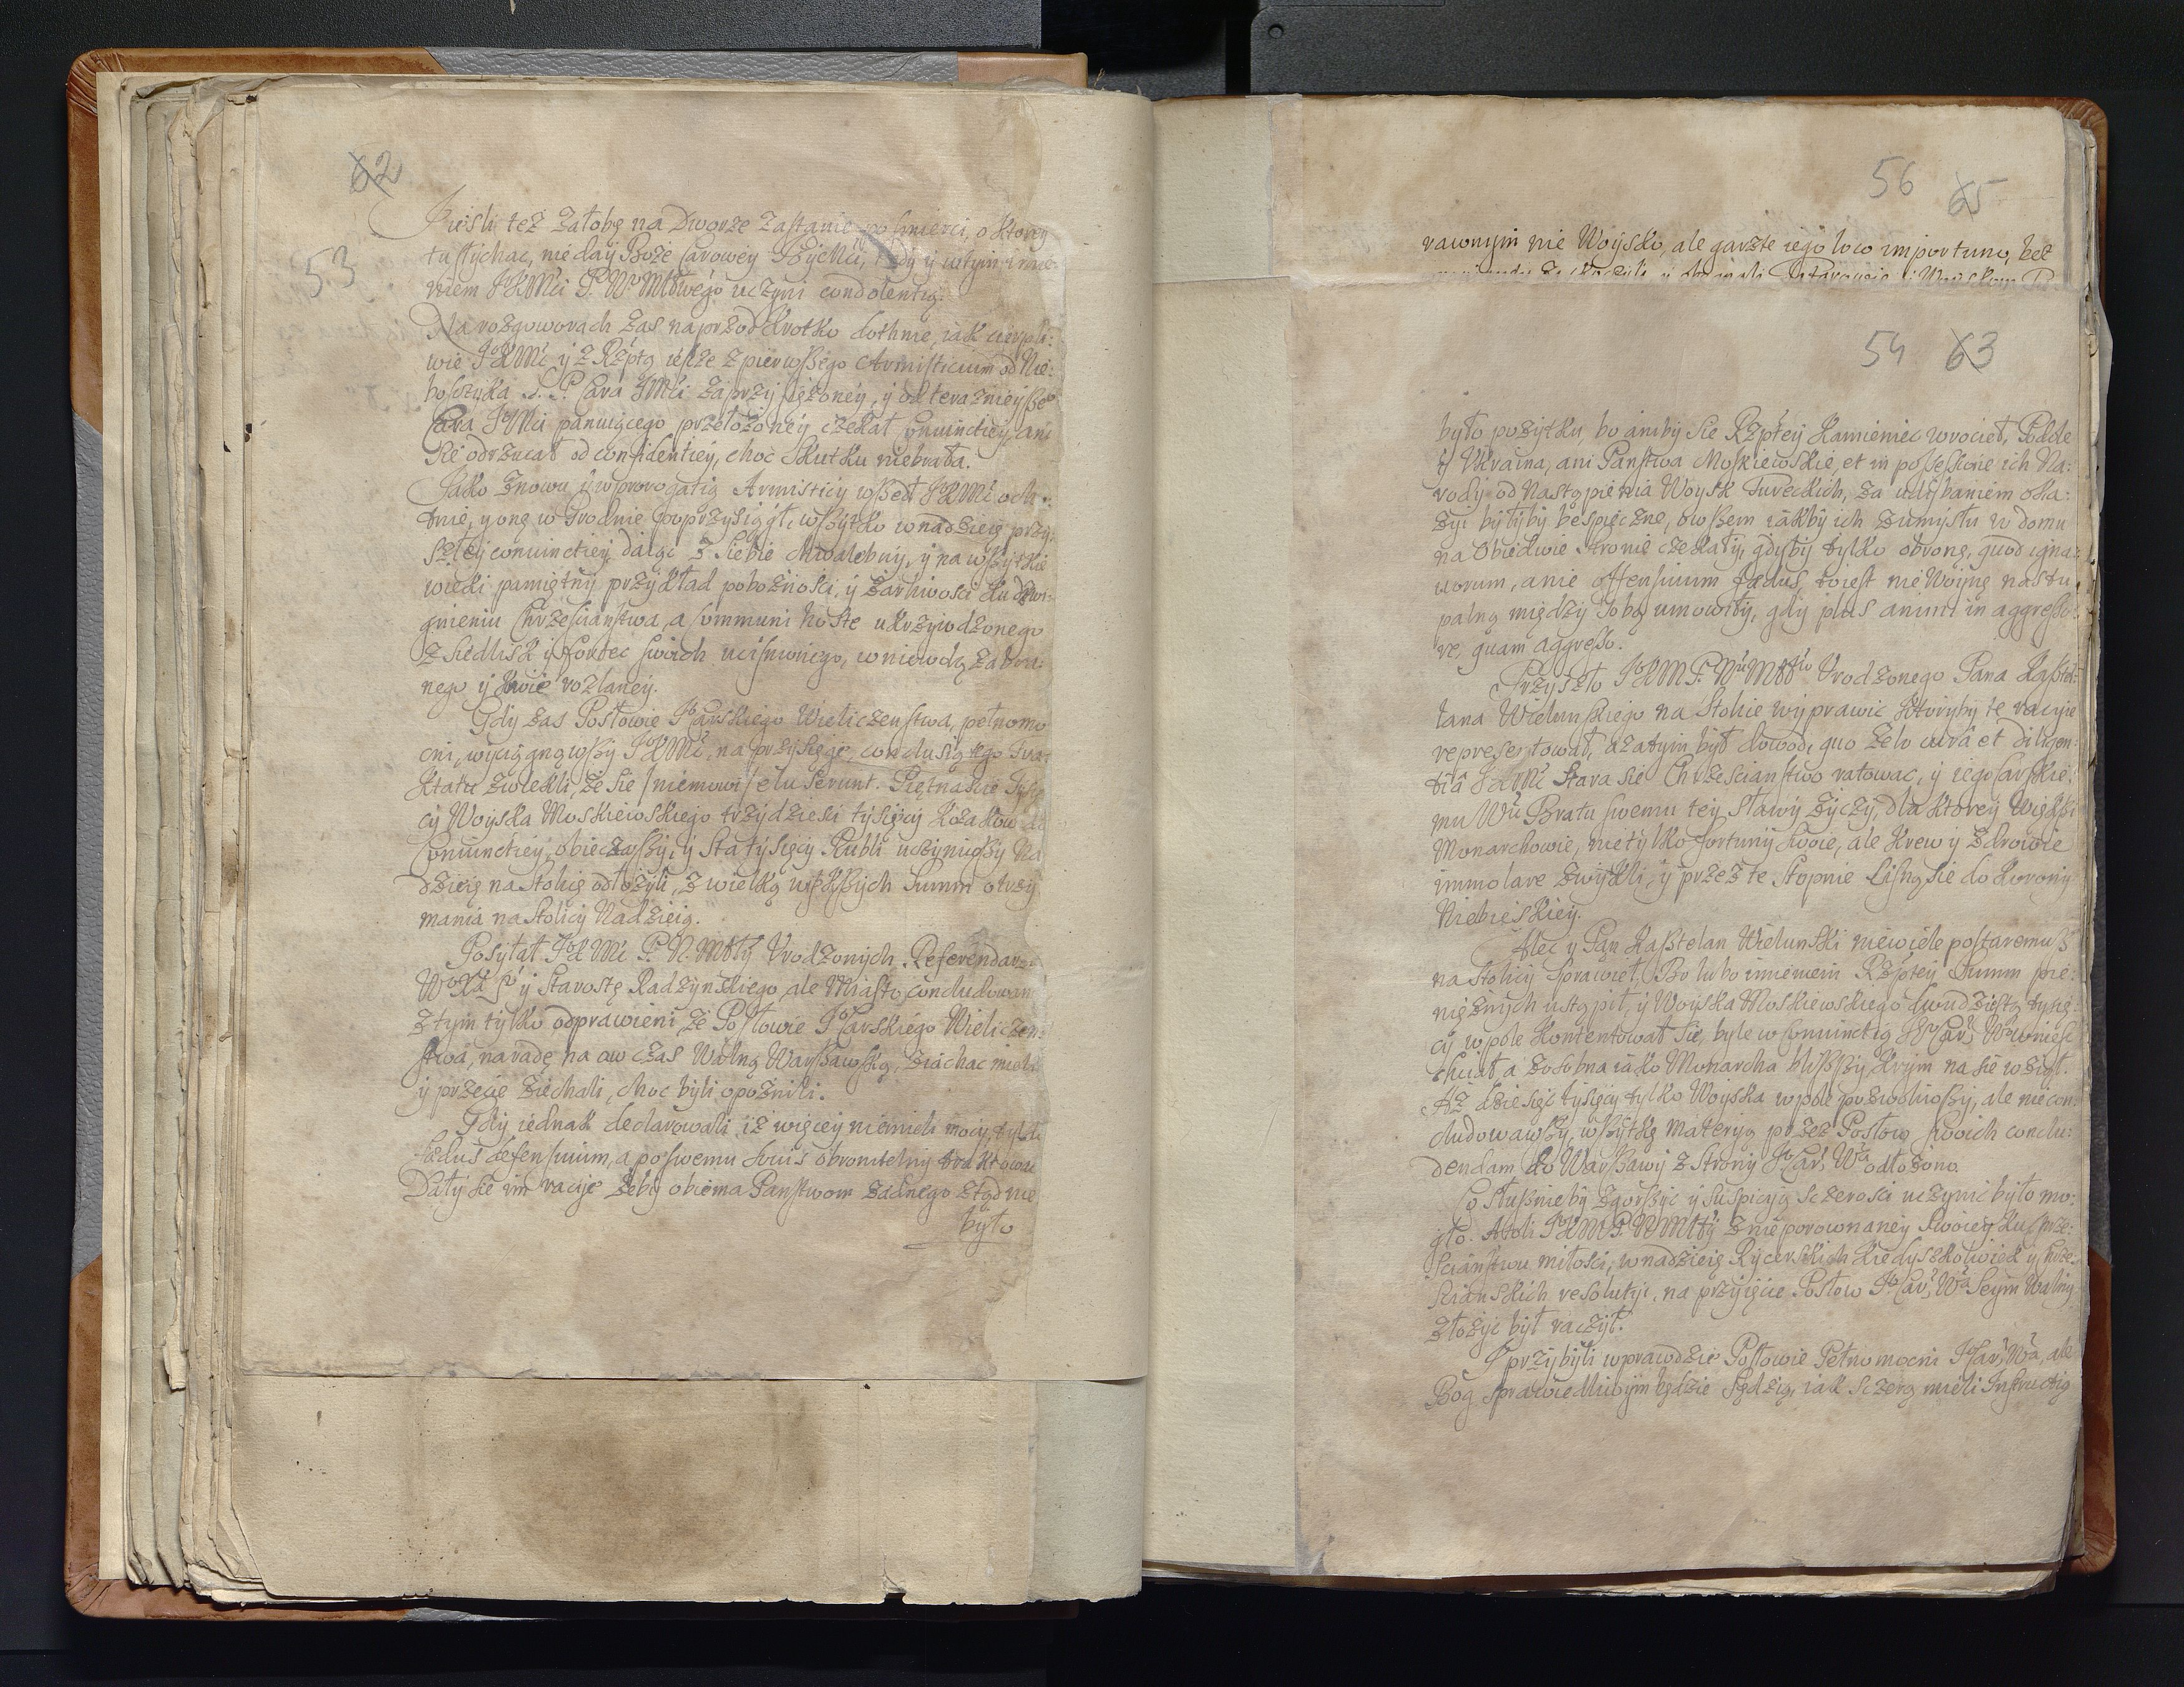 62
53
Jeśli też żałobę na Dworze zastanie po śmierci, o ktorey
tu słychac, nie day Boże Carowey JeyMci, tedy y wtym imie-
niem JKMci P. N. Młłwego uczyni condolentią.
Na rozgoworach zas naprzod krotko dothnie, iak cierpli:
wie JoKMć y z Rzptą ieszcze z pierwßego Armisticium od Nie:
boszczyka S. P. Cara JMci zaprzysiężoney, y od teraznieyße
Cara JoMci panuiącego przełożoney czekał coniunctiey, ani
się odrzucał od confidentiey, choc skutku niebrała.
Jako znowu y w prorogatią Armisticy wßedł JKMć och:
tnie, y onę w Grodnie poprzysiągł, wßytko w nadzieię przy:
szłey coniunctiey, daiąc z siebie chwalebny, y na wßytkie
wieki pamiętny przykład pobożności, y żarliwości ku dźwi:
gnieniu Chrześcianstwa, a communi hoste ukrzywdzonego
z siedlisk y fortec swoich ucisnionego, w niewolą zabra:
nego y krwie rozlaney.
Gdy zas Posłowie Jo Carskiego Wieliczenstwa, pełnomo
cni, wyciągnąwßy JoKMć, na przysięgę, conclusią tego Tra:
ktatu zwlekli, że się /niemowi/ eluserunt. Piętnascie Tysię
cy Woyska Moskiewskiego trzydziesci tysięcy Kozakow do
Coniunctiey, obiecawßy, y sta tysięcy Rubli uczyniwßy Na
dzieię na Stolicę odłożyli, z wielką więkßych Summ otrzy
mania na Stolicy Nadzieią.
Posyłał JoKMć P. N. Młły Urodzonych Referendarza
WoXa Lo y Starostę Radzynskiego, ale Miasto concludowania
z tym tylko odprawieni, że Posłowie Jo Carskiego Wieliczen:
stwa, na radę na ow czas Walną Warßawską, ziachac mieli
y przecie ziechali, choc byli opoznili.
Gdy iednak declarowali iż więcey niemieli mocy, tylko
fædus defensiuum, a po swemu Soius obronitelny traktowac
Dały się im racye żeby obiema Panstwom żadnego ztąd nie
było
56 65
rawnym nie Woysko, ale garzte iego loco importuno, bez
54 63
było pożytku, bo aniby się Rzptey Kamieniec wrocieł, Podole
y Ukraina, ani Panstwa Moskiewskie, et in possessione ich Na:
rody od nastąpienia Woysk Tureckich, za udybaniem oka:
zyi byłyby bespieczne, owßem iakby ich z umysłu w domu
na obiedwie stronie czekały, gdyby tylko obronę, quod igna:
uorum, a nie offensiuum fædus, toiest nie Woynę nastu:
palną między sobą umowiły, gdy plus animi in aggresso:
re, quam aggresso.
Przyszło JoKM P. Nu Młłu Urodzonego Pana Kaßtel:
lana Wielunskiego na Stolicę wyprawic ktoryby te racyie
represęntował, a zatym był dowod, quo zelo curâ et diligen:
tiâ JaKMć stara się Chrzescianstwo ratowac, y iego Carskie:
mu Wu Bratu swemu tey sławy życzy, dla ktorey Więkßi
Monarchowie, nie tylko fortuny swoie, ale krew y zdrowie
immolare zwykli, y przez te stopnie cisną się do Korony
Niebieskiey.
Alec y Pan Kaßtelan Wielunski niewiele postaremuß
na Stolicy sprawieł. Bo lubo imieniem Rzptey Summ pie:
niężnych ustąpił, y Woyska Moskiewskiego dwudziestą tysię:
cy w pole kontentował się, byle w coniunctią Jo Car. Wo wniesc
chciał, a zosobna iako Monarcha blißßy, Krym na się wziął.
Aż dziesięc tysięcy tylko Woyska w pole pozwoliwßy, ale niecon:
cludowawßy, wßytkę materyą przez Posłow swoich conclu:
dendam do Warßawy z strony Jo Car. Wa odłożono.
Co słußnieby zgorßyc y suspicyą sczerosci uczynic było mo:
gło. Atoli JoKM P. N. Młły z nieporownaney swoiey ku Chrze:
scianstwu miłosci, w nadzieię Rycerskich kiedyszkolwiek y Chrze
scianskich resolutyi, na przyięcie Posłow Jo Car. Wa Seym Walny
złożyc był raczył.
I przybyli wprawdzie Posłowie Pełnomocni Jo Car. Wa, ale
Bog sprawiedliwym będzie sędzią, iak sczerą mieli Instructią